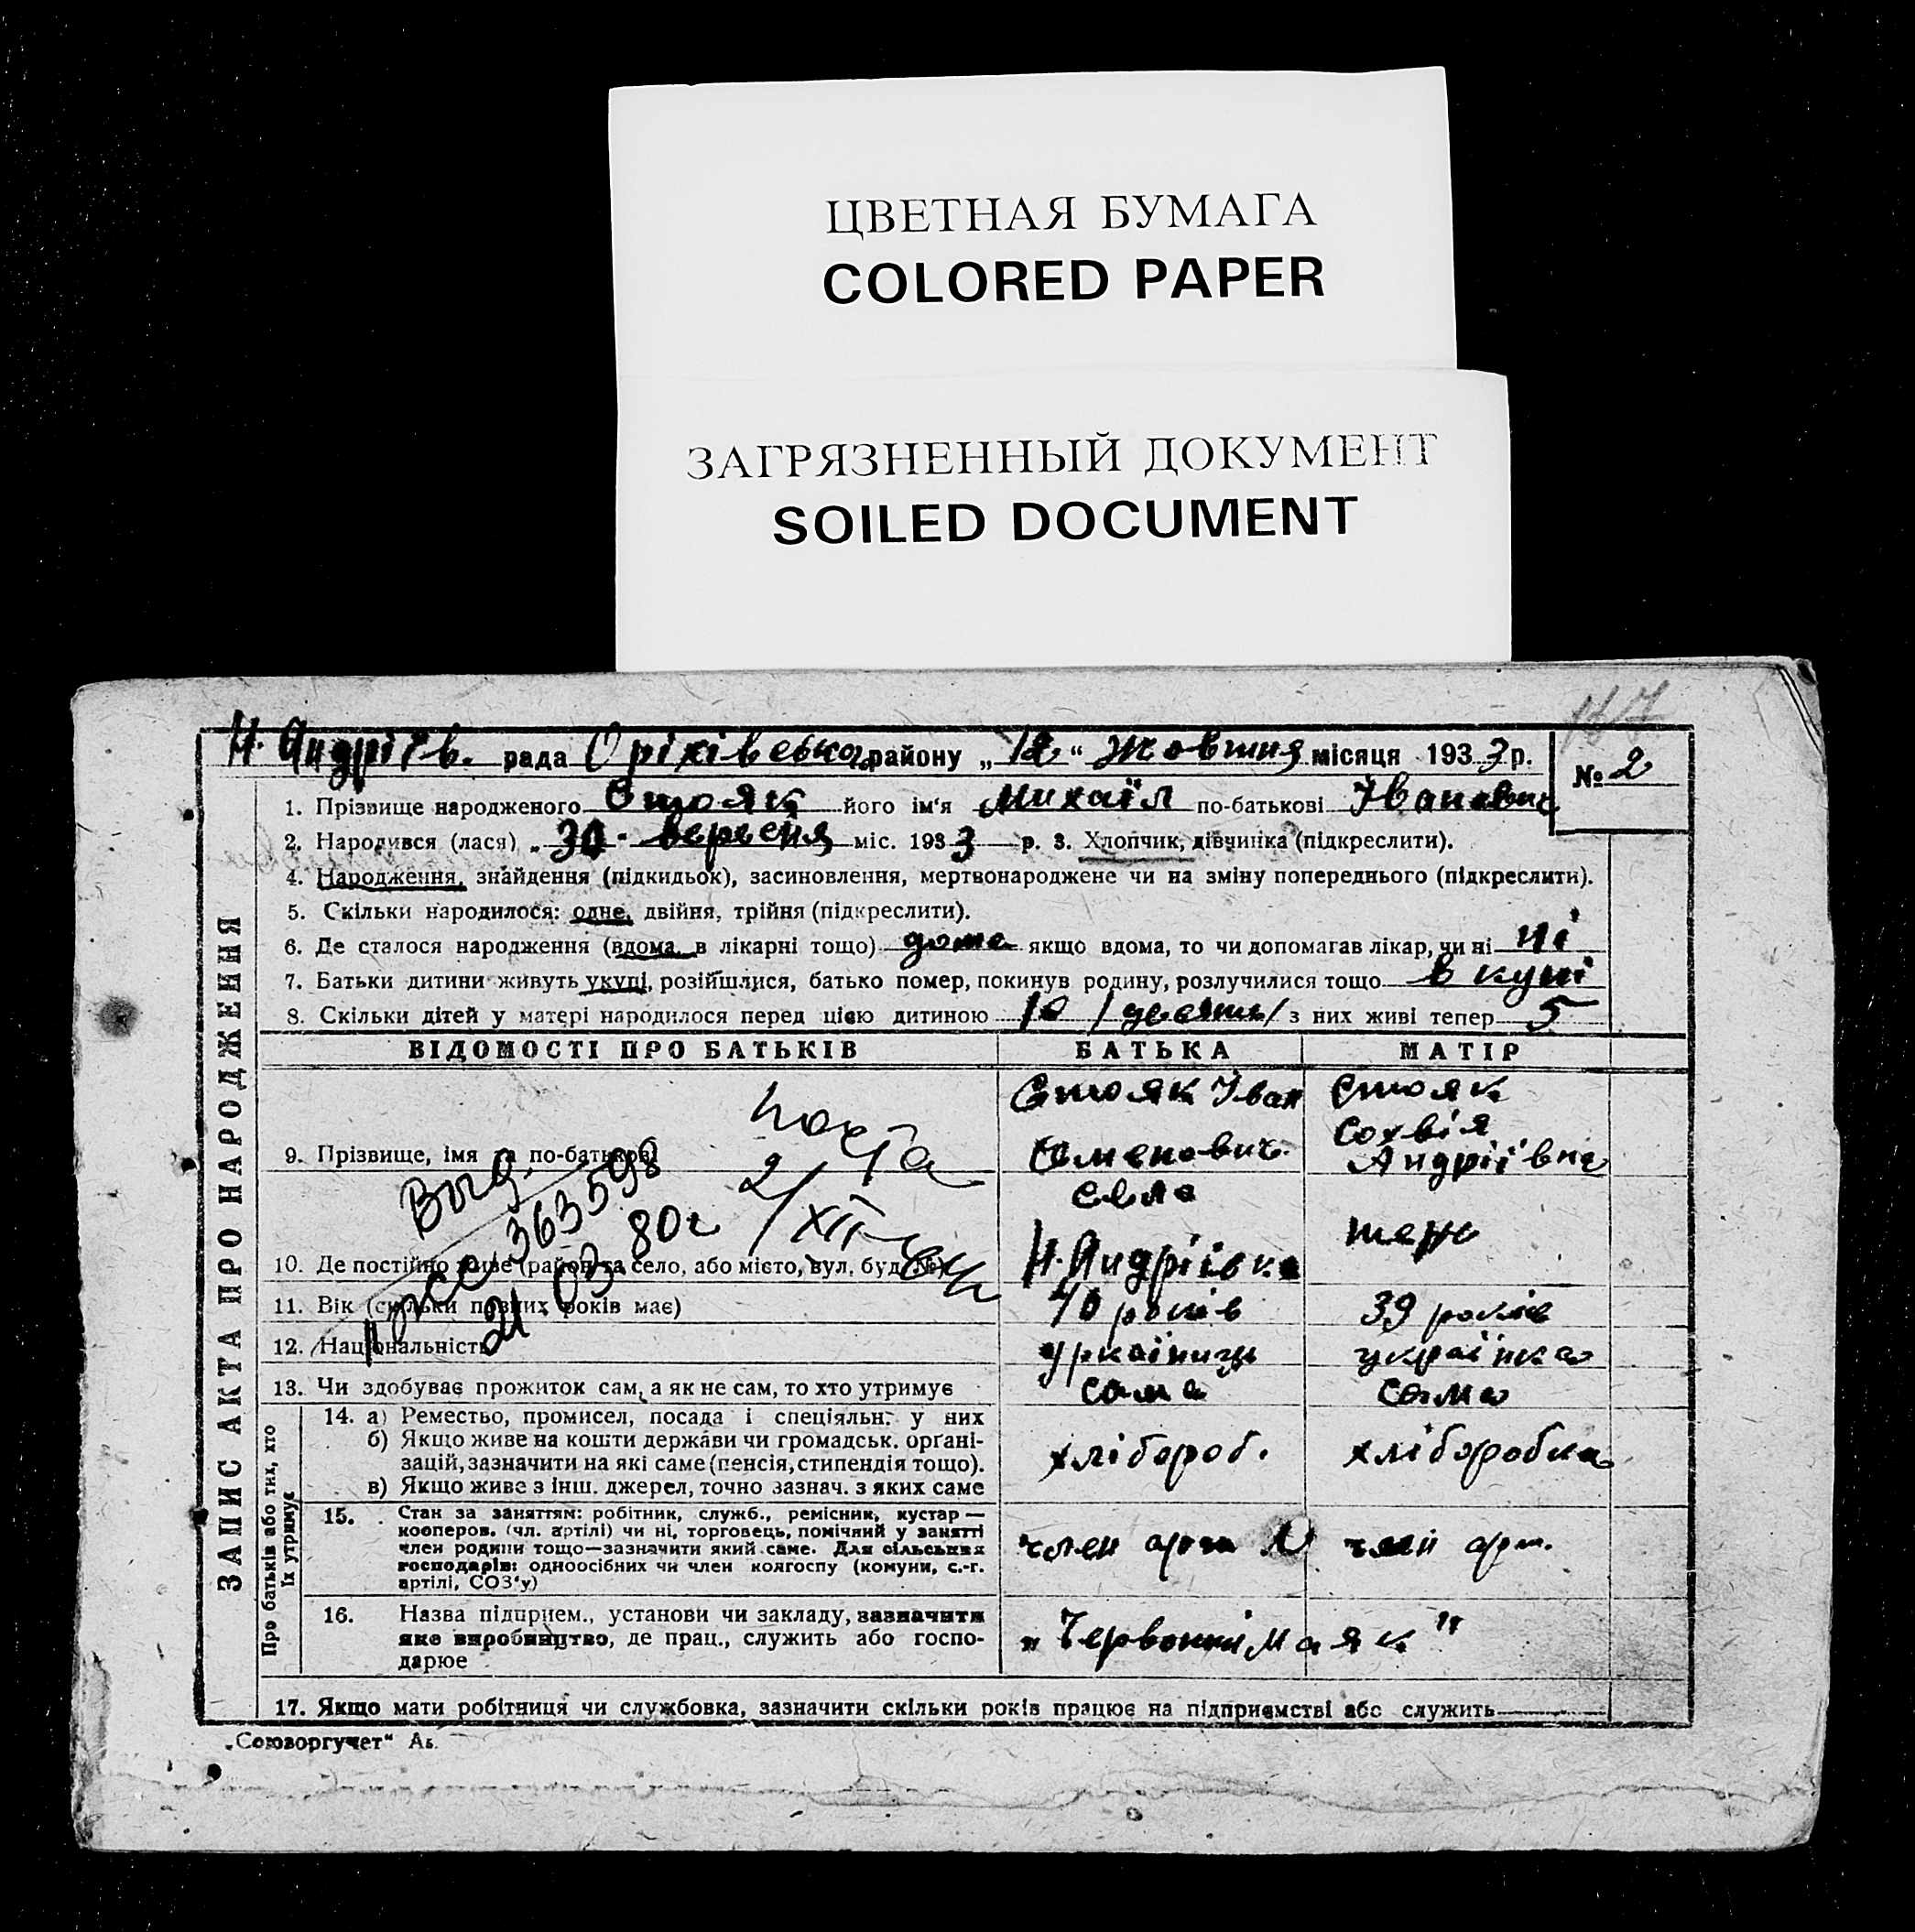 ЦВЕТНАЯ БУМАГА
COLORED PAPER
ЗАГРЯЗНЕННЫЙ ДОКУМЕНТ
SOILED DOCUMENT
Н. Андріїв. рада Оріхівська району „12“ Жовтня місяця 1933 р.
№ 2
1. Прізвище народженого Стояк його ім‘я Михаїл по-батькові Іванович
2. Народився (лася) „30" вересня міс. 1933 р. 3. Хлопчик, дівчинка (підкреслити).
4. Народження, знайдення (підкидьок), засиновлення, мертвонароджене чи на зміну попереднього (підкреслити).
5. Скільки народилося: одне, двійня, трійня (підкреслити).
6. Де сталося народження (вдома, в лікарні тощо) дома якщо вдома, то чи допомагав лікар, чи ні ні
7. Батьки дитини живуть укупі, розійшлися, батько помер, покинув родину, розлучилися тощо в купі
8. Скільки дітей у матері народилося перед цією дитиною 10 / десять/ з них живі тепер 5
ЗАПИС АКТА ПРО НАРОДЖЕННЯ
ВІДОМОСТІ ПРО БАТЬКІВ БАТЬКА МАТІР
9. Прізвище, імя та по-батькові
Стояк Іван
Семенович
Стояк
Софвія
Андріївна
10. Де постійно живе (район та село, або місто, вул. буд. №)
села
Н. Андріївка
теж
Выд.
363598
21 03 80г
2/XII
11. Вік (скільки повних років має) 40 років 39 років
12. Національність українець українка
13. Чи здобуває прожиток сам, а як не сам, то хто утримує сама сама
Про батьків або тих, хто їх утримує
14. а) Реместьо, промисел, посада і спеціяльн. у них
б) Якщо живе на кошти держави чи громадськ. органі-
зацій, зазначити на які саме (пенсія, стипендія тощо).
в) Якщо живе з інш. джерел, точно зазнач. з яких саме
хлібороб. хліборобка
15. Стан за заняттям: робітник, служб., ремісник, кустар —
кооперов. (чл. артілі) чи ні, торговець, помічний у занятті
член родини тощо—зазначити який саме. Для сільських
господарів: одноосібних чи член колгоспу (комуни, с.-г.
артілі, СОЗ‘у)
член арт член арт.
16. Назва підприєм., установи чи закладу, зазначити
яке виробництво, де прац., служить або госпо-
дарює
„Червоний Маяк"
17. Якщо мати робітниця чи службовка, зазначити скільки років працює на підприємстві або служить
„Союзоргучет“